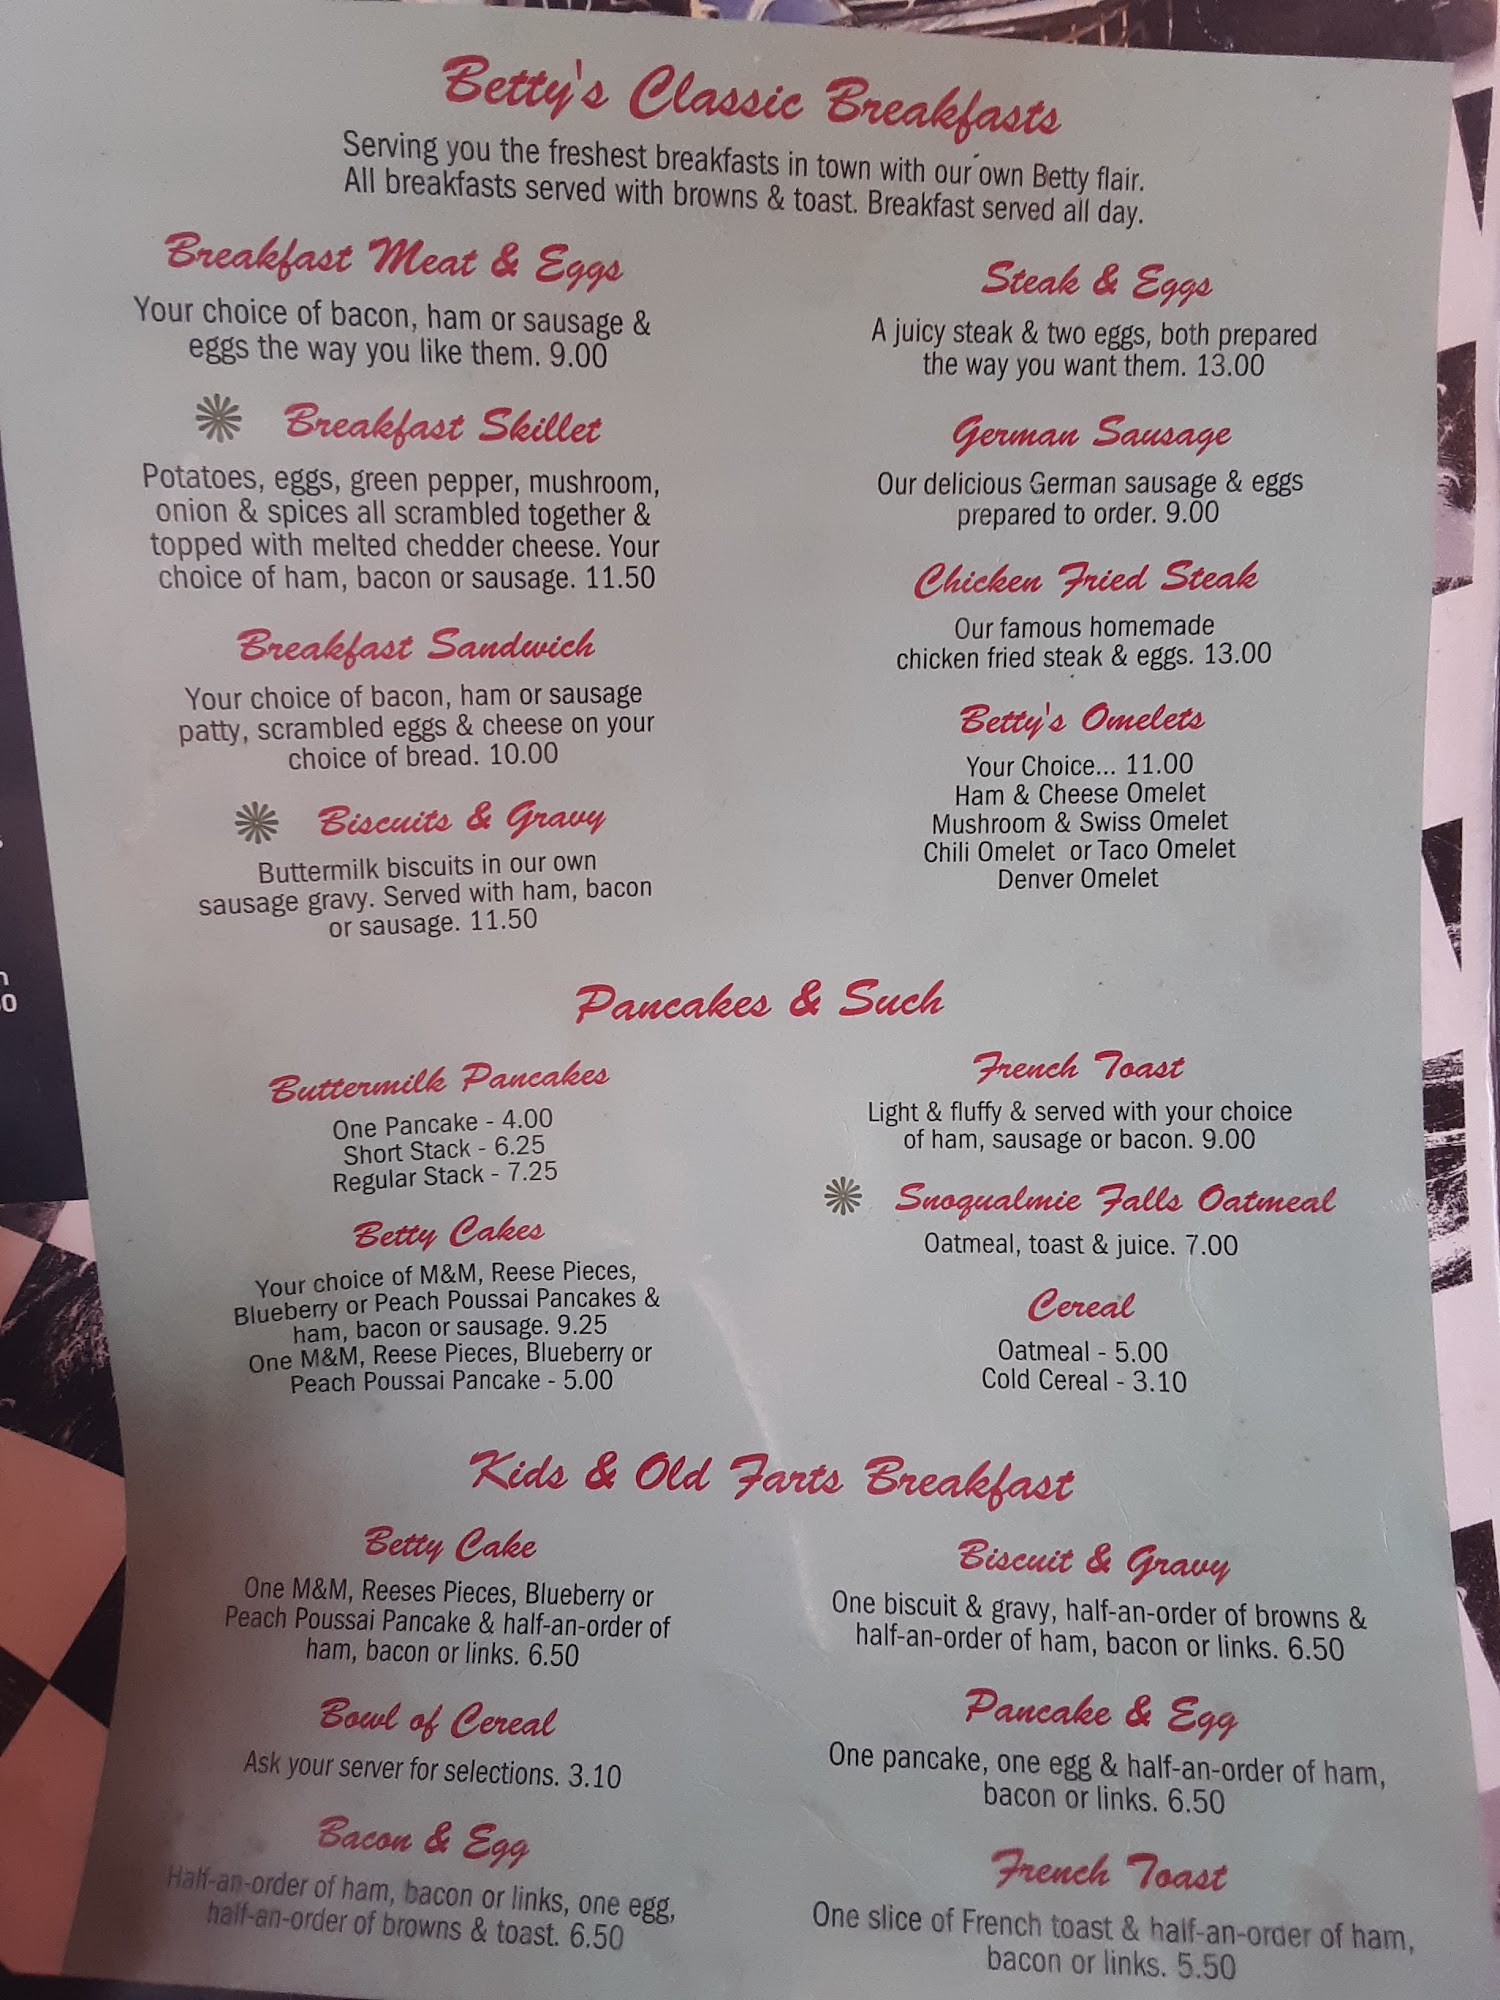 Betty's Classic Breakfasts
Serving you the freshest breakfasts in town with our own Betty flair.
All breakfasts served with browns & toast. Breakfast served all day.
Breakfast Meat & Eggs
Your choice of bacon, ham or sausage &
eggs the way you like them. 9.00
Breakfast Skillet
Potatoes, eggs, green pepper, mushroom,
onion & spices all scrambled together &
topped with melted chedder cheese. Your
choice of ham, bacon or sausage. 11.50
Breakfast Sandwich
Your choice of bacon, ham or sausage
patty, scrambled eggs & cheese on your
choice of bread. 10.00
Biscuits & Gravy
Buttermilk biscuits in our own
sausage gravy. Served with ham, bacon
or sausage. 11.50
Steak & Eggs
A juicy steak & two eggs, both prepared
the way you want them. 13.00
German Sausage
Our delicious German sausage & eggs
prepared to order. 9.00
Chicken Fried Steak
Our famous homemade
chicken fried steak & eggs. 13.00
Betty's Omelets
Your Choice... 11.00
Ham & Cheese Omelet
Mushroom & Swiss Omelet
Chili Omelet or Taco Omelet
Denver Omelet
Pancakes & Such
Buttermilk Pancakes
One Pancake - 4.00
Short Stack - 6.25
Regular Stack - 7.25
Betty Cakes
Your choice of M&M, Reese Pieces,
Blueberry or Peach Poussai Pancakes &
ham, bacon or sausage. 9.25
One M&M, Reese Pieces, Blueberry or
Peach Poussai Pancake - 5.00
French Toast
Light & fluffy & served with your choice
of ham, sausage or bacon. 9.00
Snoqualmie Falls Oatmeal
Oatmeal, toast & juice. 7.00
Cereal
Oatmeal - 5.00
Cold Cereal - 3.10
Kids & Old Farts Breakfast
Betty Cake
One M&M, Reeses Pieces, Blueberry or
Peach Poussai Pancake & half-an-order of
ham, bacon or links. 6.50
Bowl of Cereal
Ask your server for selections. 3.10
Bacon & Egg
Half-an-order of ham, bacon or links, one egg,
half-an-order of browns & toast. 6.50
Biscuit & Gravy
One biscuit & gravy, half-an-order of browns &
half-an-order of ham, bacon or links. 6.50
Pancake & Egg
One pancake, one egg & half-an-order of ham,
bacon or links. 6.50
French Toast
One slice of French toast & half-an-order of ham,
bacon or links. 5.50